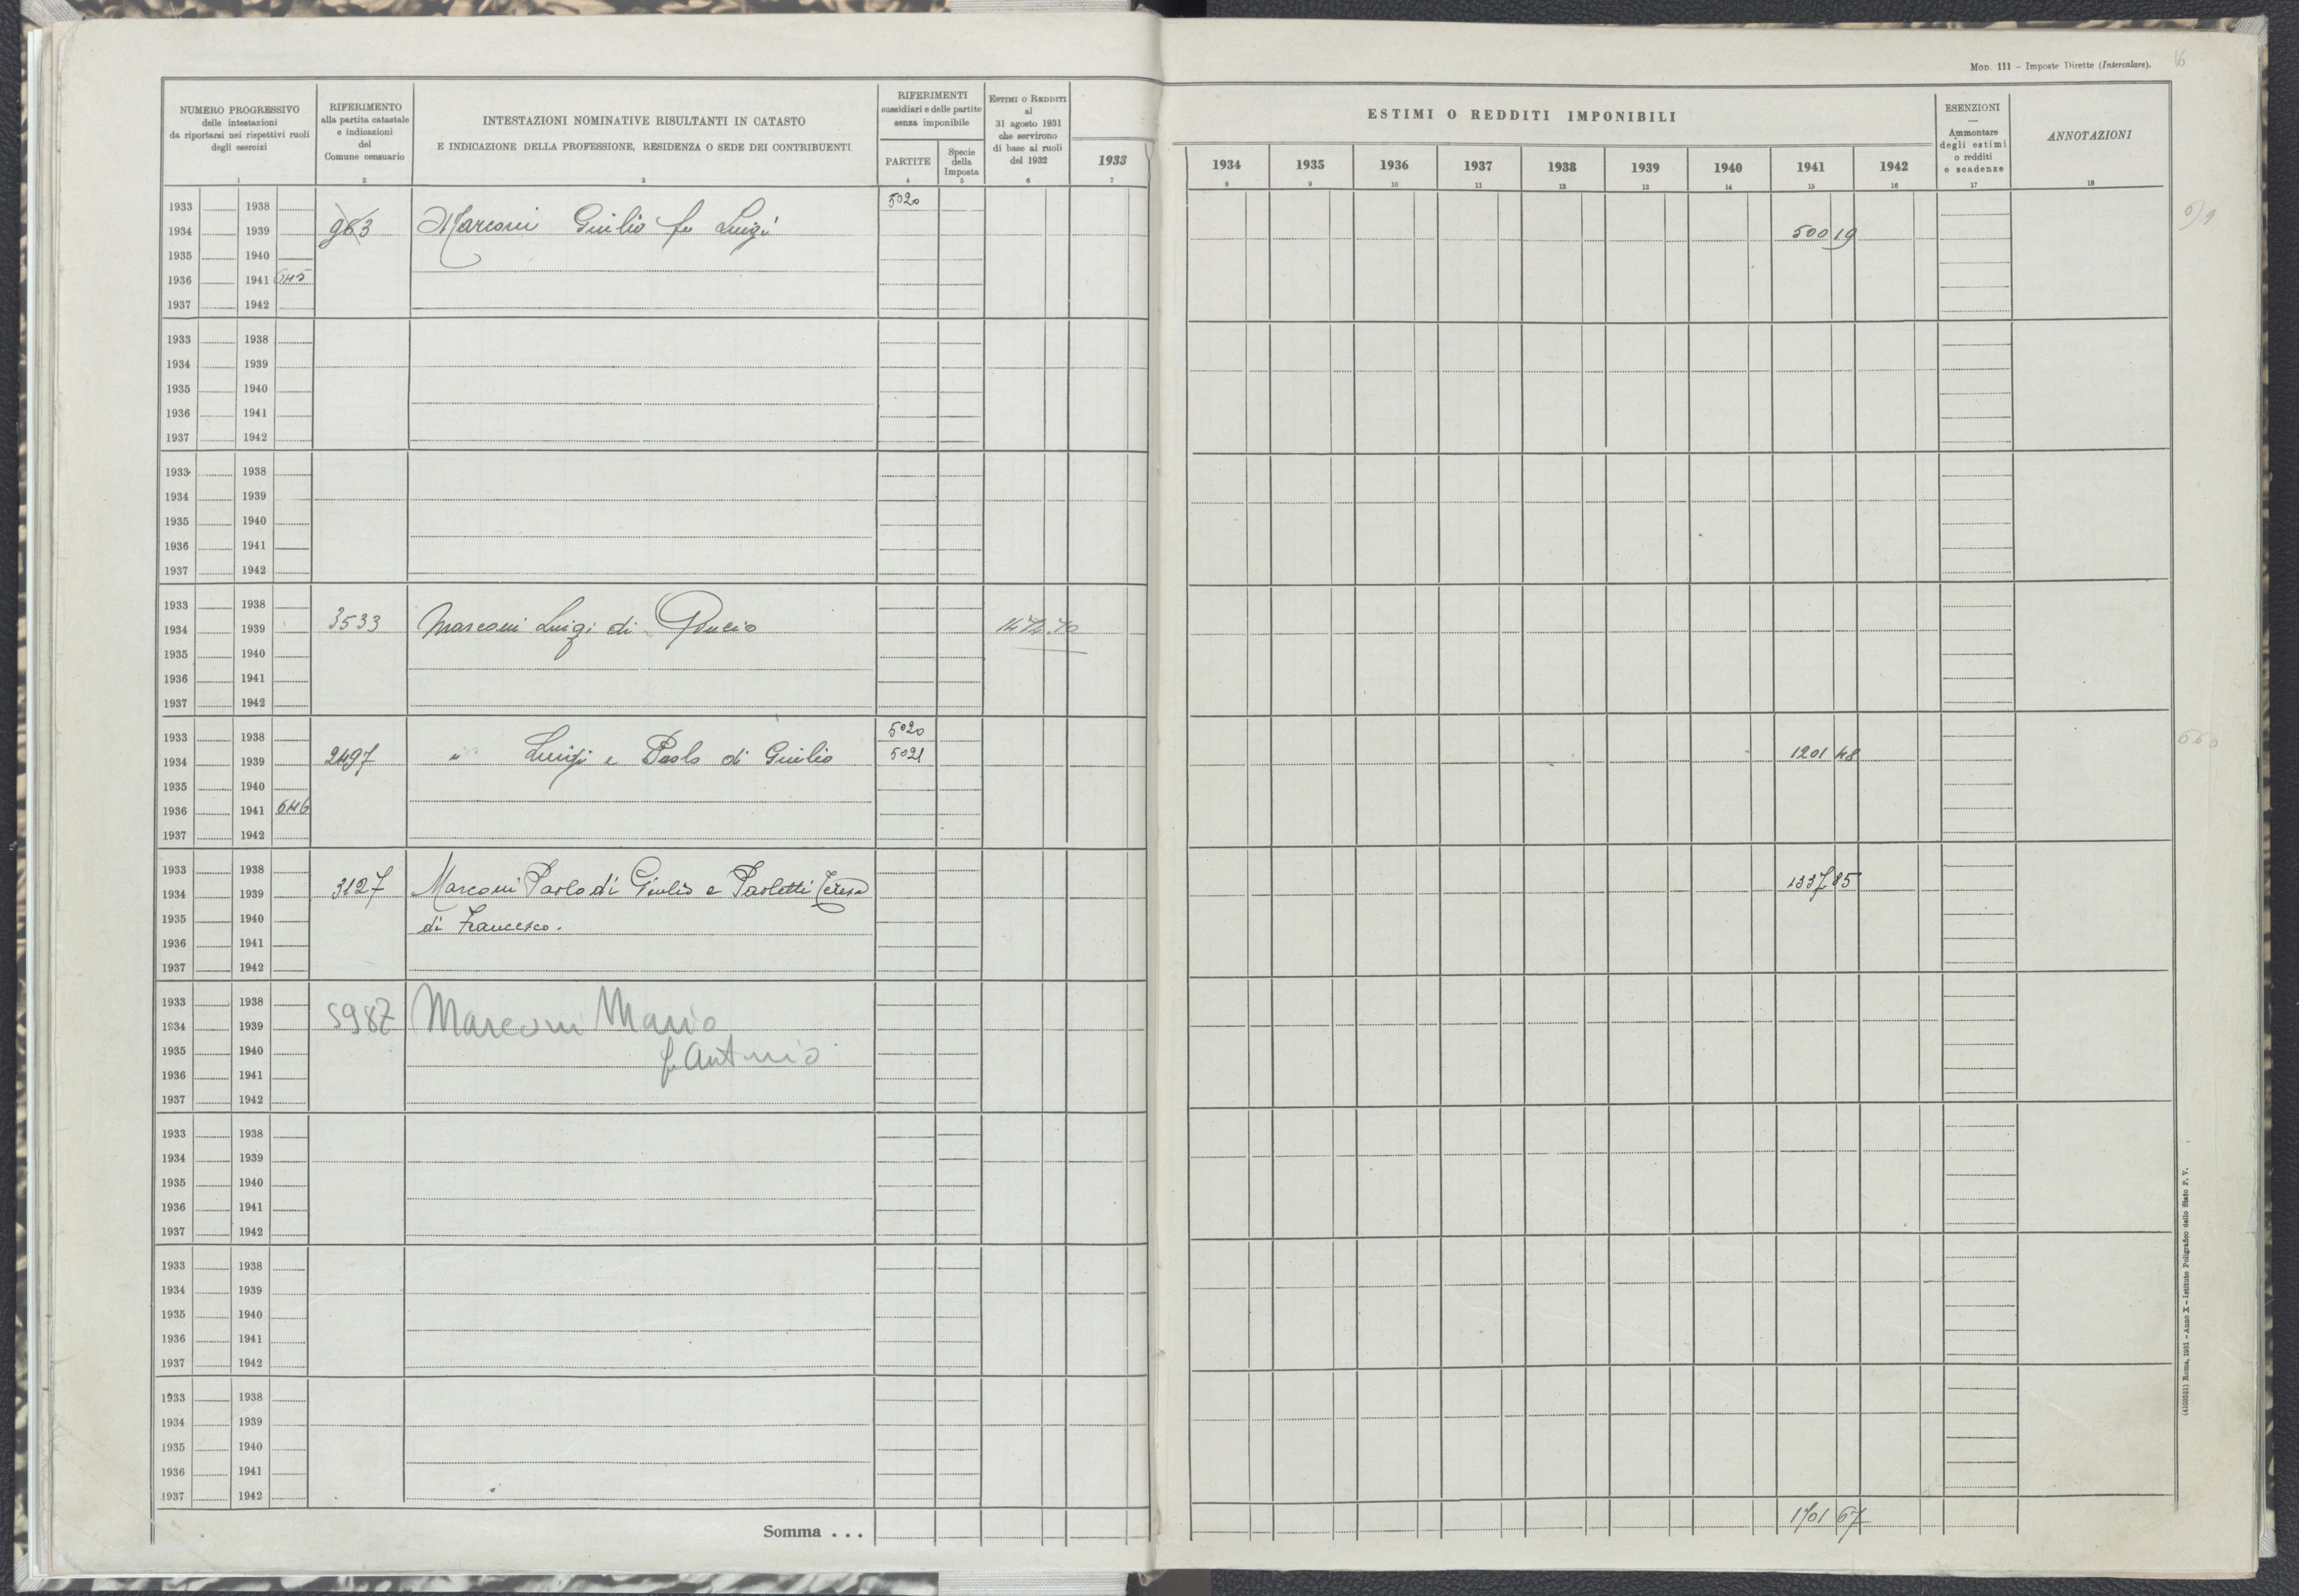 Mod. 111 – Imposte Dirette (Intercalare).
16
NUMERO PROGRESSIVO
delle intestazioni
da riportarsi nei rispettivi ruoli
degli esercizi
1
RIFERIMENTO
alla partita catastale
e indicazioni
del
Comune censuario
2
INTESTAZIONI NOMINATIVE RISULTANTI IN CATASTO
E INDICAZIONE DELLA PROFESSIONE, RESIDENZA O SEDE DEI CONTRIBUENTI
3
RIFERIMENTI
sussidiari e delle partite
senza imponibile
PARTITE
4
Specie
della
Imposta
5
Estimi o Redditi
al
31 agosto 1931
che servirono
di base ai ruoli
del 1932
6
1933
7
ESTIMI O REDDITI IMPONIBILI
1934 1935 1936 1937 1938 1939 1940 1941 1942
8 9 10 11 12 13 14 15 16
ESENZIONI
—
Ammontare
degli estimi
o redditi
e scadenze
17
ANNOTAZIONI
18
1933 1938 5020
1934 1939 963 Marconi Giulio fu Luigi 500 19
1935 1940
1936 1941 645
1937 1942
1933 1938
1934 1939
1935 1940
1936 1941
1937 1942
1933 1938
1934 1939
1935 1940
1936 1941
1937 1942
1933 1938
1934 1939 3533 Marconi Luigi di
1935 1940
1936 1941
1937 1942
1933 1938 5020
1934 1939 2497 " Luigi e Paolo di Giulio 5021 1201 48 660
1935 1940
1936 1941 646
1937 1942
1933 1938
1934 1939 3127 Marconi Paolo di Giulio e Paoletti Teresa 1337 85
1935 1940 di Francesco.
1936 1941
1937 1942
1933 1938
1934 1939 5987 Marconi Mario
1935 1940 fu Antonio
1936 1941
1937 1942
1933 1938
1934 1939
1935 1940
1936 1941
1937 1942
1933 1938
1934 1939
1935 1940
1936 1941
1937 1942
1933 1938
1934 1939
1935 1940
1936 1941
1937 1942
Somma . . . 1701 67
(4103521) Roma, 1931 – Anno X – Istituto Poligrafico dello Stato P. V.